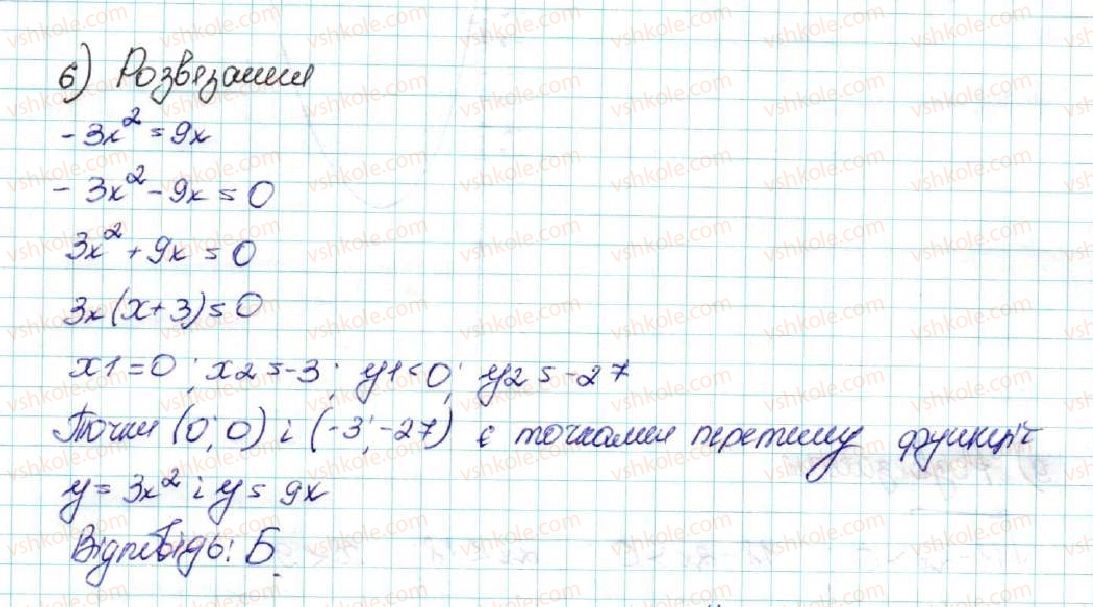 6) Розвязання
-3x² = 9x
-3x² - 9x = 0
3x² + 9x = 0
3x(x+3) = 0
x1 = 0; x2 = -3; y1 = 0; y2 = -27
Точки (0; 0) і (-3; -27) є точками перетину функції
y = 3x² і y = 9x
Відповідь: Б